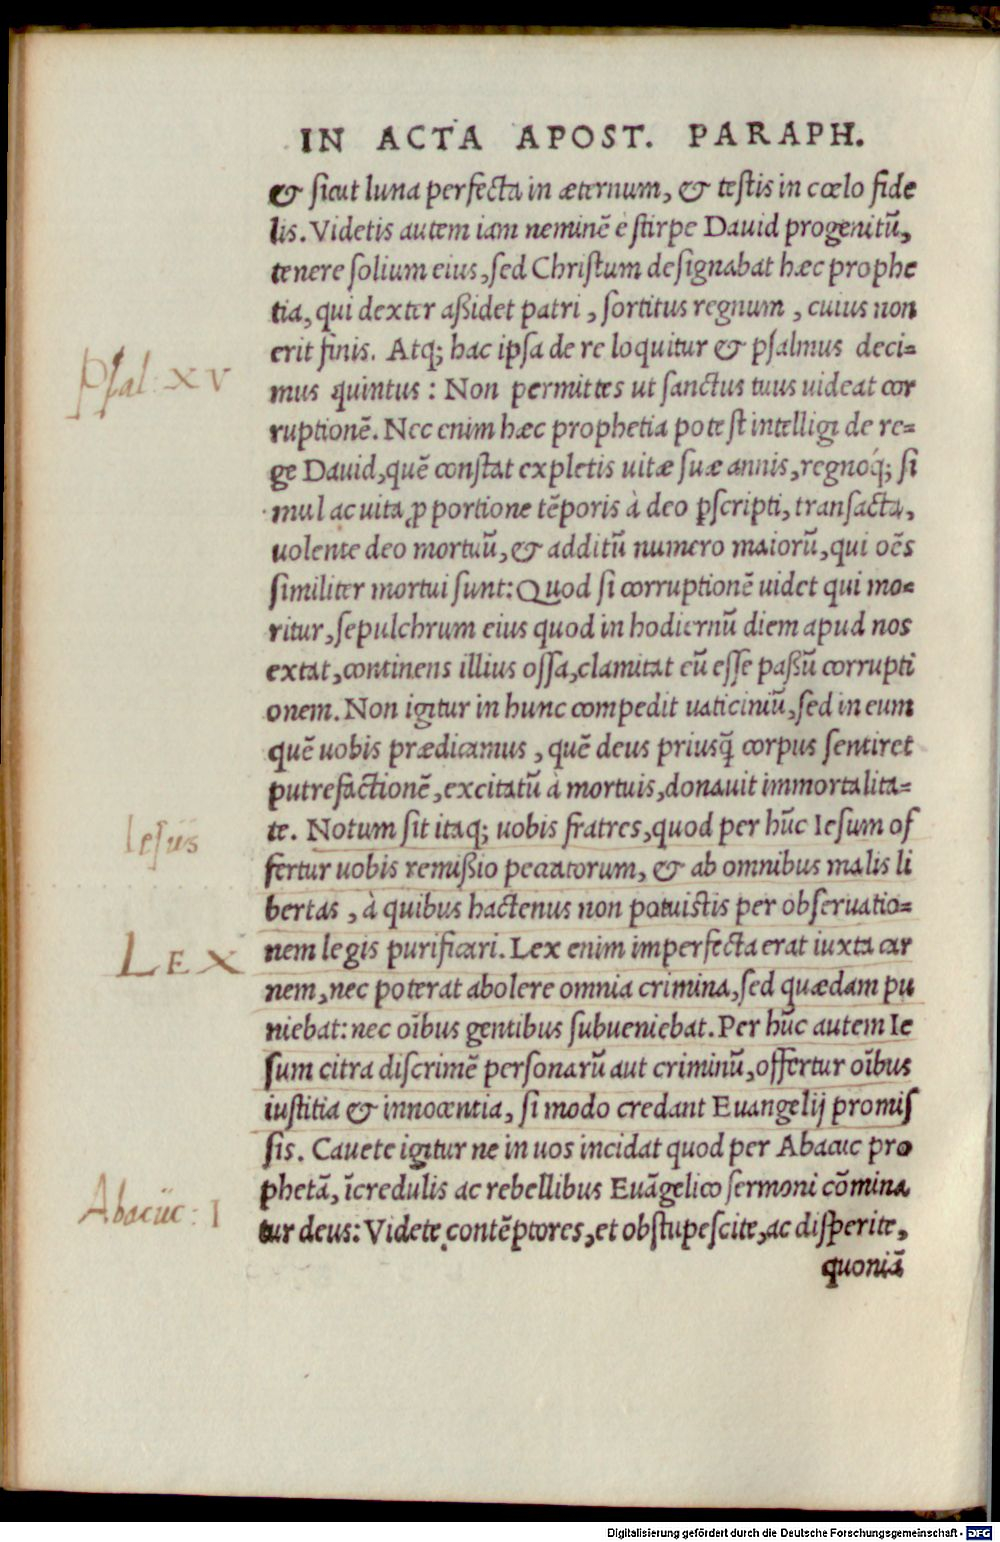 IN ACTA APOST. PARAPH.
& sicut luna perfecta in æternum, & testis in cœlo fide
lis. Videtis autem iam neminē è stirpe Dauid progenitū,
tenere solium eius, sed Christum designabat hæc prophe
tia, qui dexter aßidet patri, sortitus regnum, cuius non
erit finis. Atq; hac ipsa de re loquitur & psalmus deci=
Psal: XV
mus quintus: Non permittes ut sanctus tuus uideat cor
ruptionē. Nec enim hæc prophetia potest intelligi de re=
ge Dauid, quē constat expletis uitæ suæ annis, regnoq́; si
mul ac uita ꝓ portione tēporis à deo p̄scripti, transacta,
uolente deo mortuū, & additū numero maiorū, qui oēs
similiter mortui sunt: Quod si corruptionē uidet qui mo=
ritur, sepulchrum eius quod in hodiernū diem apud nos
extat, continens illius ossa, clamitat eū esse paßū corrupti
onem. Non igitur in hunc compedit uaticiniū, sed in eum
quē uobis prædicamus, quē deus priusq̄ corpus sentiret
putrefactionē, excitatū à mortuis, donauit immortalita=
te. Notum sit itaq; uobis fratres, quod per hūc Iesum of
Iesus
fertur uobis remißio peccatorum, & ab omnibus malis li
bertas, à quibus hactenus non potuistis per obseruatio=
nem legis purificari. Lex enim imperfecta erat iuxta car
LEX
nem, nec poterat abolere omnia crimina, sed quædam pu
niebat: nec oībus gentibus subueniebat. Per hūc autem Ie
sum citra discrimē personarū aut criminū, offertur oībus
iustitia & innocentia, si modo credant Euangelij promis
sis. Cauete igitur ne in uos incidat quod per Abacuc pro
phetā, īcredulis ac rebellibus Euāgelico sermoni cōmina
Abacuc: I
tur deus: Videte contēptores, et obstupescite, ac disperite,
quoniā
Digitalisierung gefördert durch die Deutsche Forschungsgemeinschaft - DFG